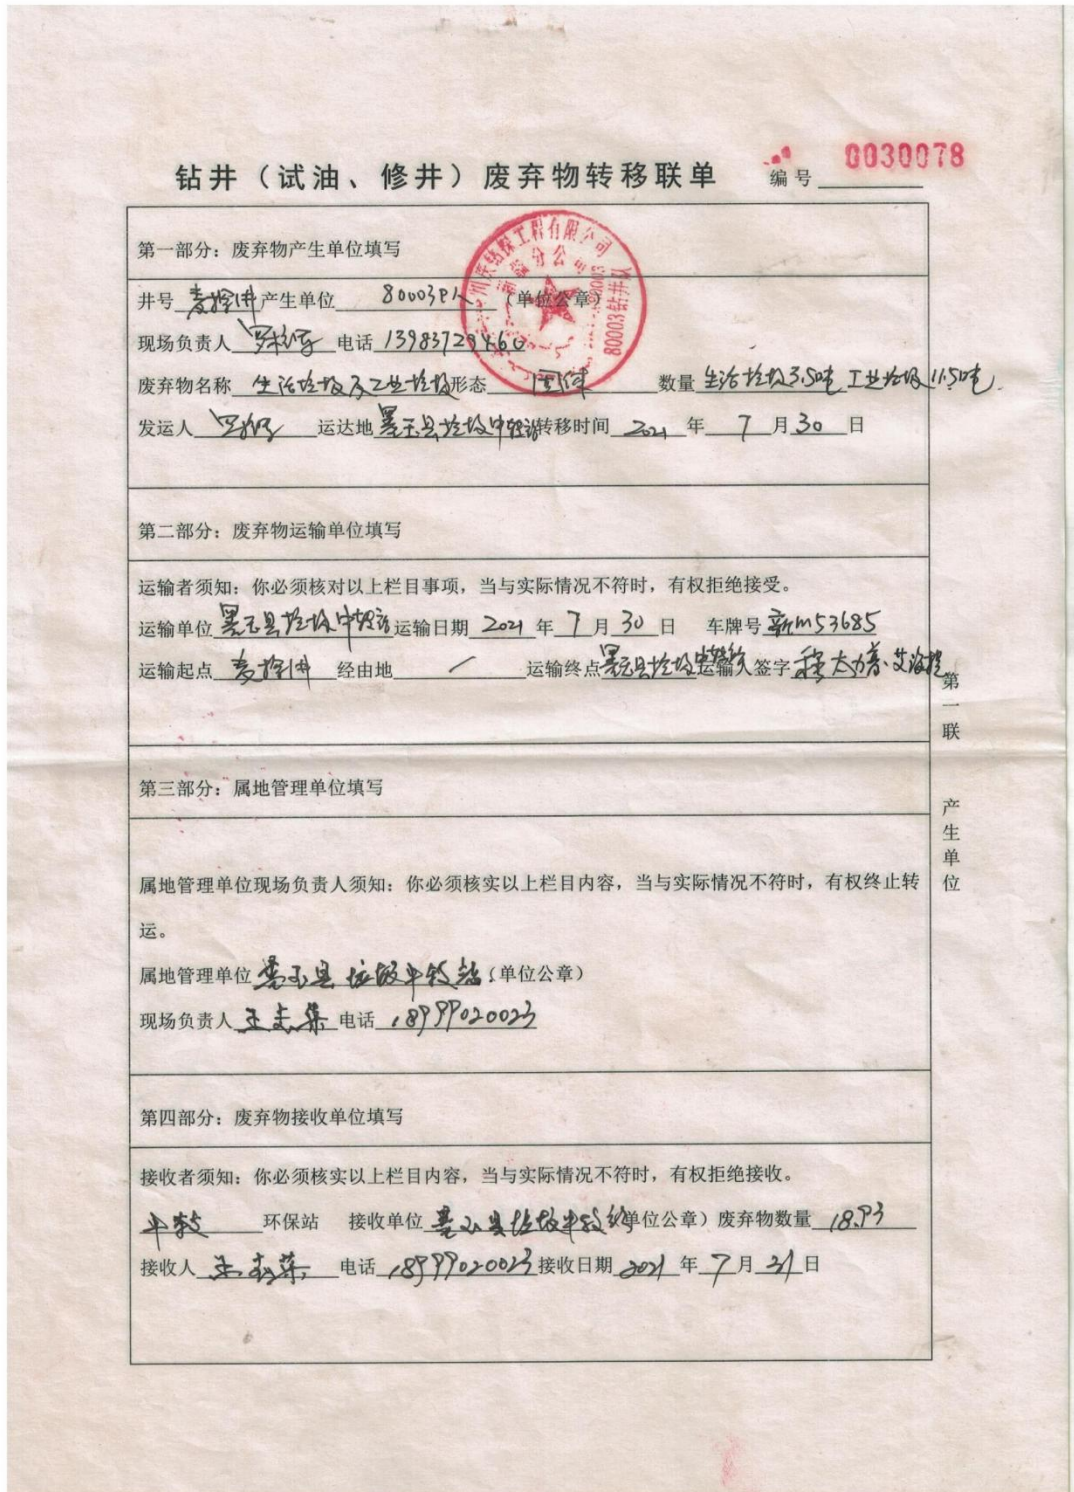 钻井（试油、修井）废弃物转移联单 编号 0030078
第一部分：废弃物产生单位填写
井号 麦探1井 产生单位 80003队 （单位公章）
现场负责人 电话 13983729460
废弃物名称 生活垃圾及工业垃圾 形态 固体 数量 生活垃圾3.50吨 工业垃圾11.50吨
发运人 运达地 墨玉县垃圾中转站 转移时间 2021 年 7 月 30 日
第二部分：废弃物运输单位填写
运输者须知：你必须核对以上栏目事项，当与实际情况不符时，有权拒绝接受。
运输单位 墨玉县垃圾中转站 运输日期 2021 年 7 月 30 日 车牌号 新m53685
运输起点 麦探1井 经由地 / 运输终点 墨玉县垃圾 运输人签字
第三部分：属地管理单位填写
属地管理单位现场负责人须知：你必须核实以上栏目内容，当与实际情况不符时，有权终止转
运。
属地管理单位 墨玉县垃圾中转站（单位公章）
现场负责人 电话 18999020023
第四部分：废弃物接收单位填写
接收者须知：你必须核实以上栏目内容，当与实际情况不符时，有权拒绝接收。
中转站 环保站 接收单位 墨玉县垃圾中转站（单位公章）废弃物数量 18.93
接收人 电话 18999020023 接收日期 2021 年 7 月 31 日
第一联 产生单位
80003钻井队